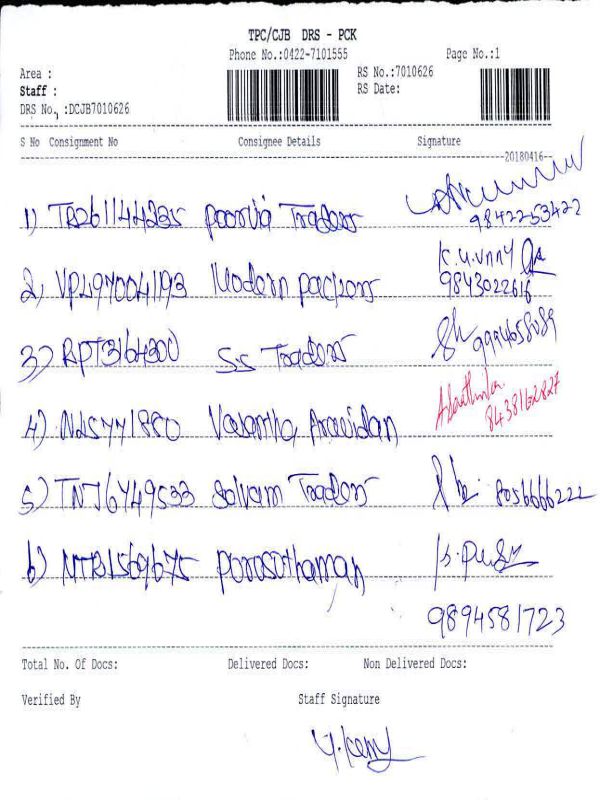 TPC/CJB DRS - PCK
Phone No.:0422-7101555 Page No.:1
Area : RS No.:7010626
Staff : RS Date:
DRS No., :DCJB7010626
S No Consignment No Consignee Details Signature
20180416
1) Poorvia Traders 9842253422
2) VPL97004193 Modern packers K.U.Unny 9843022616
3) RPT3164300 SS Traders 9994658089
4) Vasantha 8438162827
5) TNJ6749533 Selvam Traders 8056666222
6)
9894581723
Total No. Of Docs: Delivered Docs: Non Delivered Docs:
Verified By Staff Signature